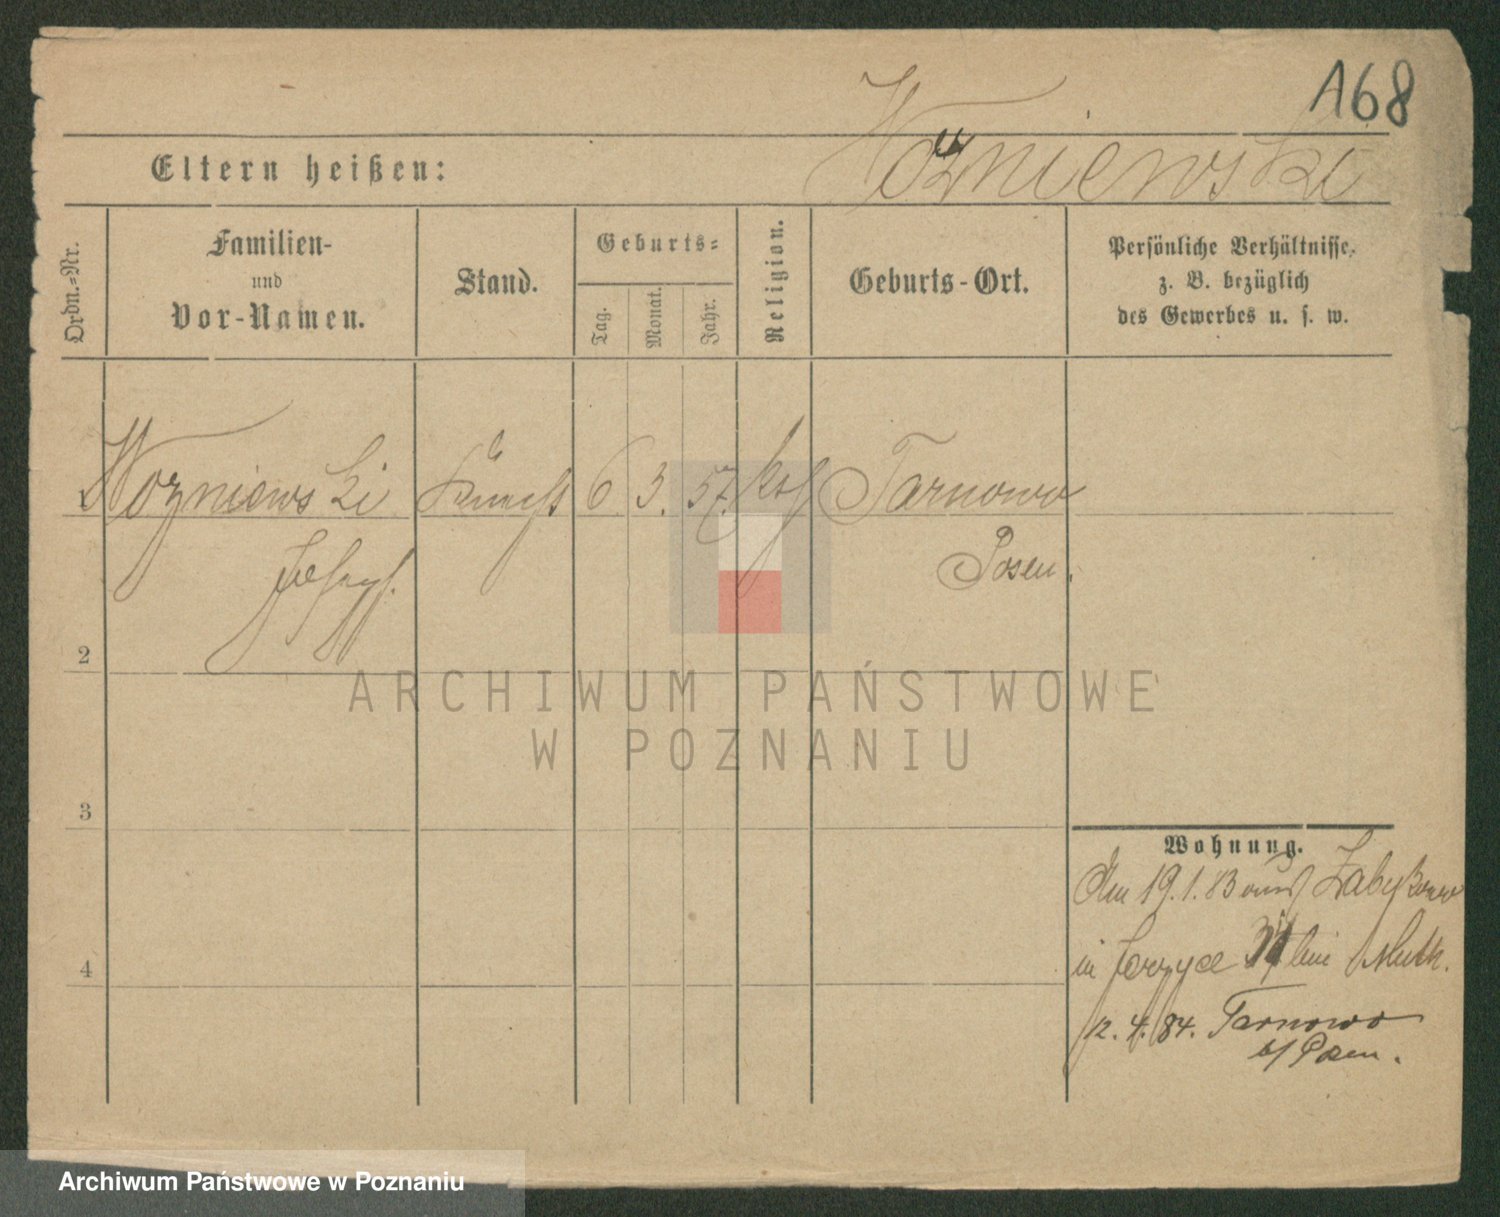 168
Woźniewski
Eltern heißen:
Ordn.-Nr.
Familien-
und
Vor-Namen.
Stand.
Geburts-
Tag.
Monat.
Jahr.
Religion.
Geburts-Ort.
Persönliche Verhältnisse,
z. B. bezüglich
des Gewerbes u. s. w.
1
Wozniewski
Knecht
6
3.
57.
kath
Tarnowo
Josef.
Posen.
2
3
4
Wohnung.
Am 19.1.83 aus Zabykowo
in Jerzyce 31 bei Muth.
12. 4. 84. Tarnowo
b/ Posen.
ARCHIWUM PAŃSTWOWE
W POZNANIU
Archiwum Państwowe w Poznaniu